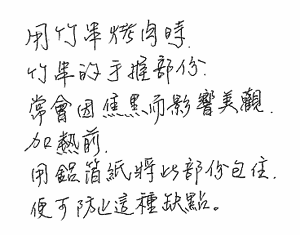 用竹串烤肉時.
竹串的手握部份.
常會因焦黑而影響美觀.
加熱前.
用鋁箔紙將此部份包住.
便可防止這種缺點。